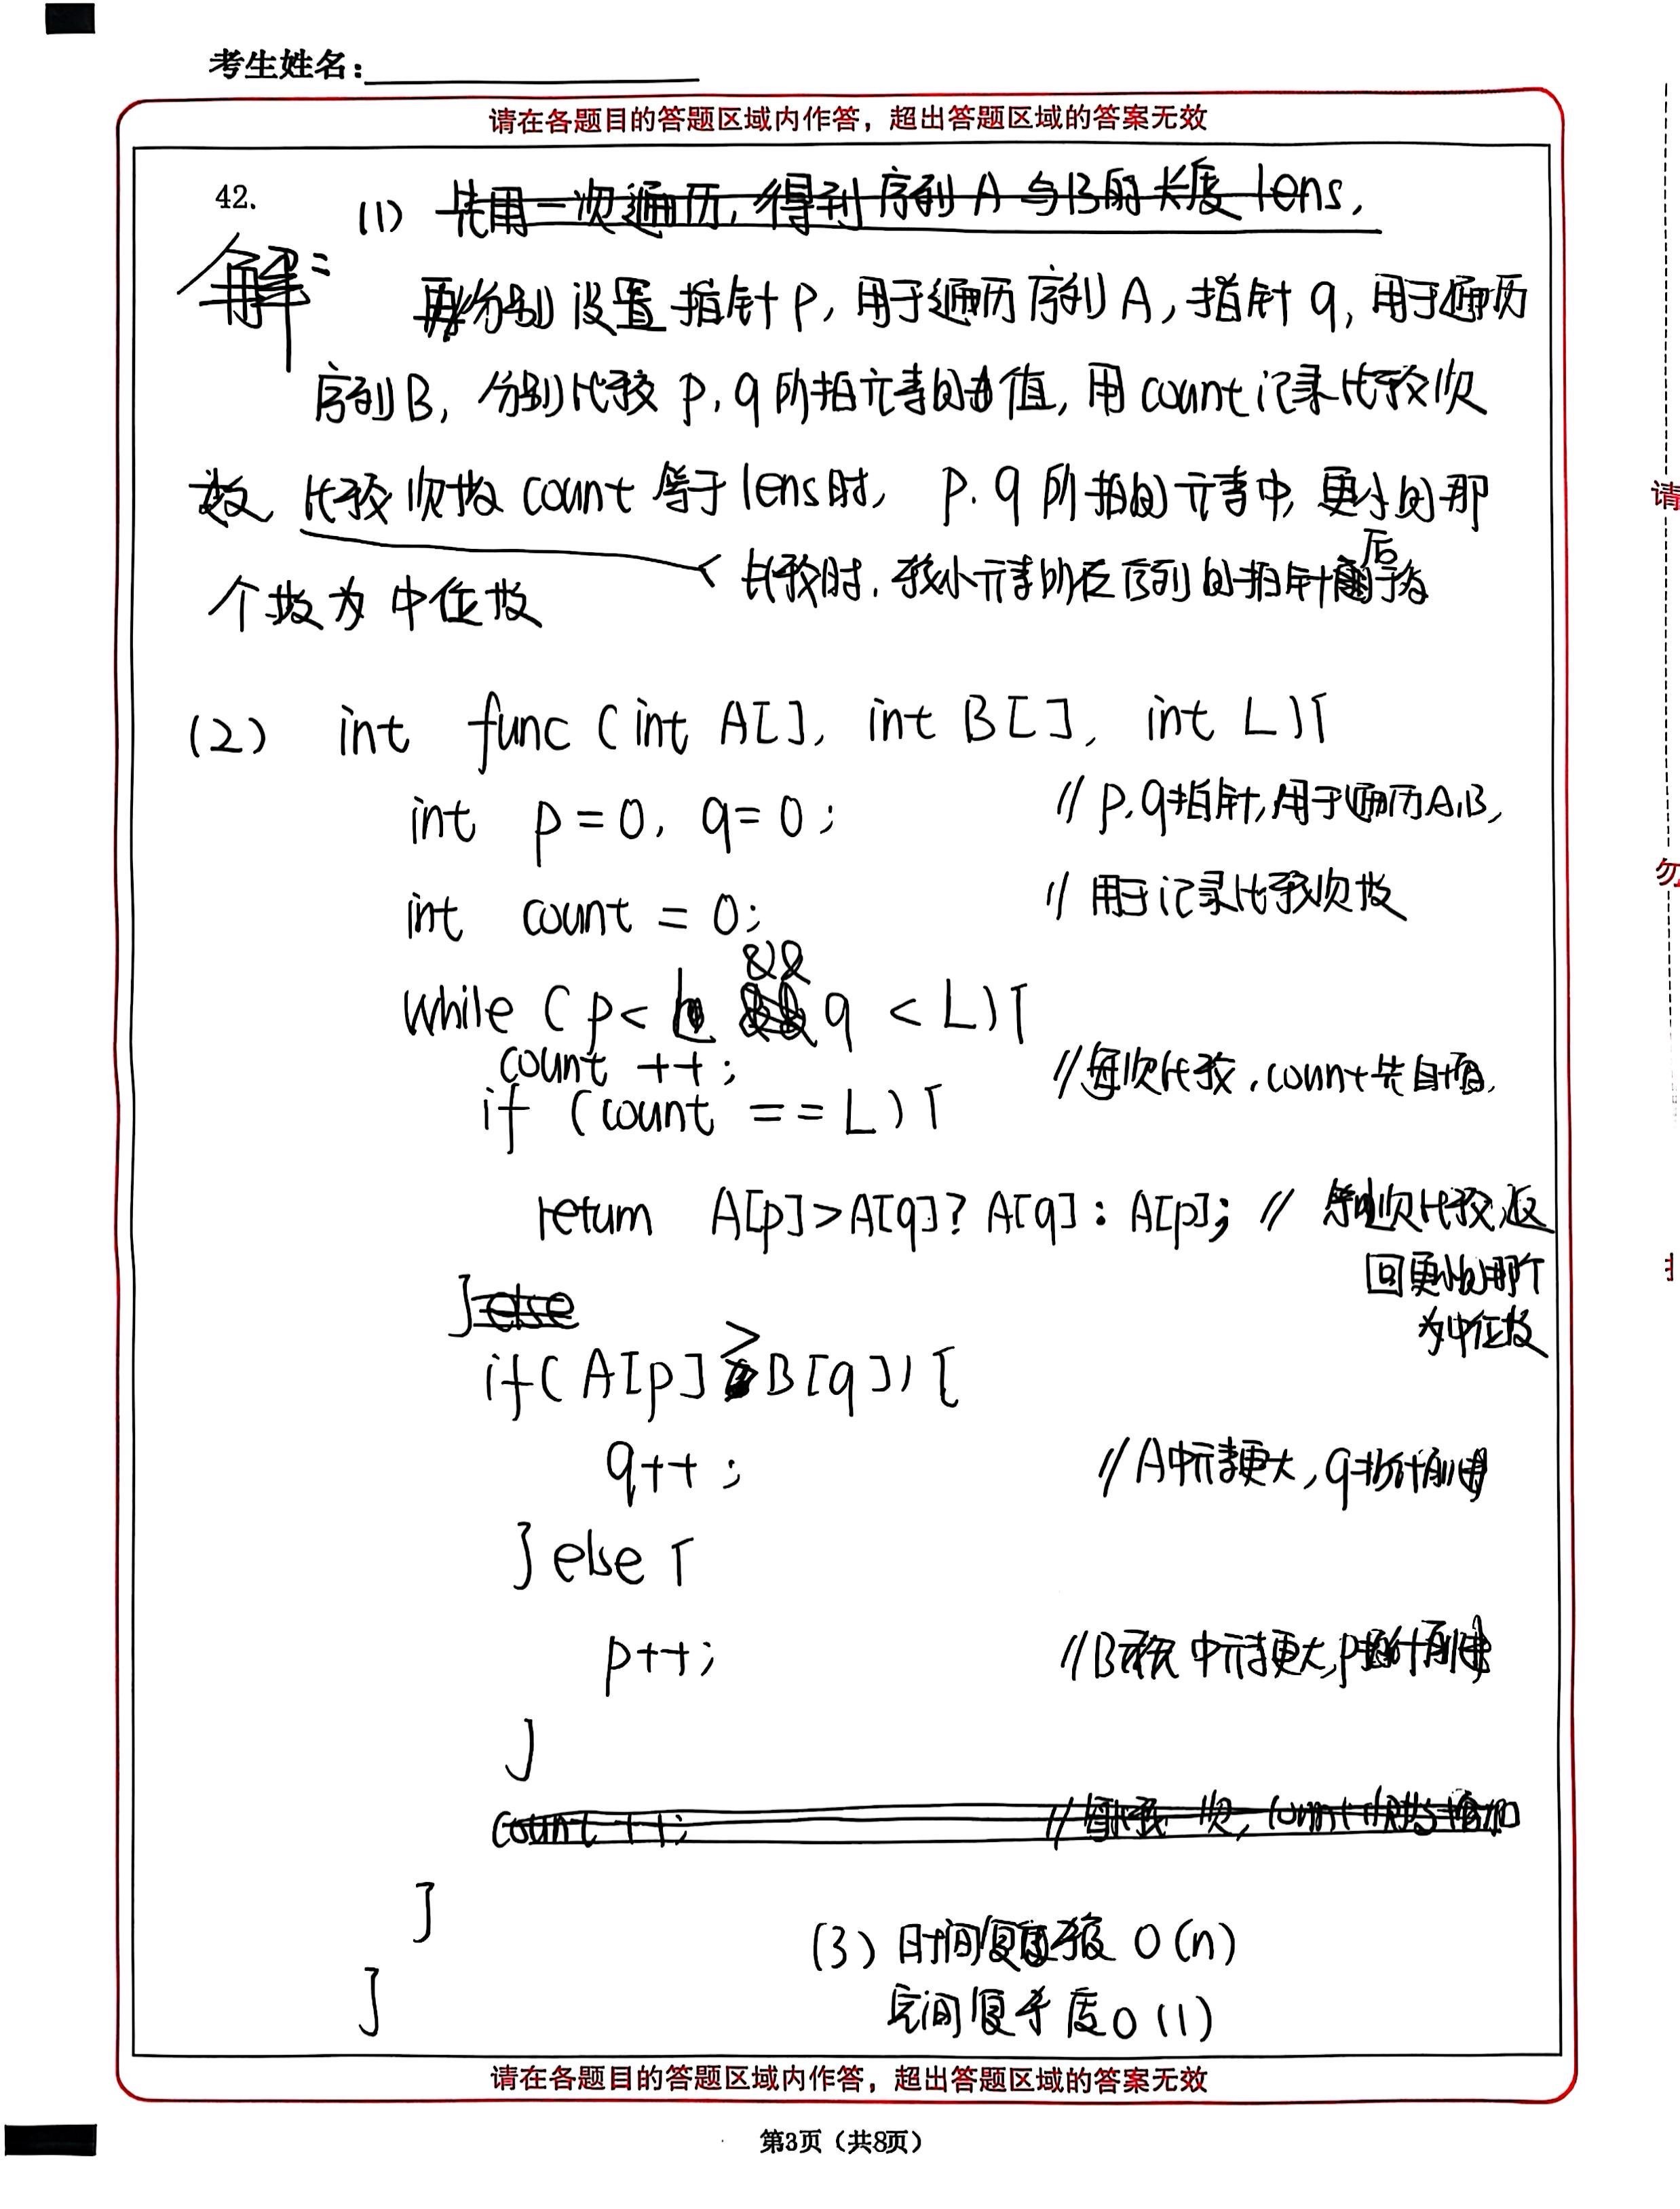 考生姓名：
请在各题目的答题区域内作答，超出答题区域的答案无效
42.
(1) 先用一次遍历，得到序列A与B的长度lens，
解：
再分别设置指针p，用于遍历序列A，指针q，用于遍历
序列B，分别比较p，q所指元素的值，用count记录比较次
数，比较次数count等于lens时，p.q所指的元素中，更小的那
比较时，较小元素所在序列的指针后移
个数为中位数
(2) int func (int A[], int B[], int L){
int p=0, q=0; //p.q指针，用于遍历A.B，
int count = 0; //用于记录比较次数
while (p<L && q<L){
count ++; //每次比较，count先自增，
if (count ==L){
return A[p]>A[q]? A[q]: A[p]; // 第L次比较，返
回更小的那个
为中位数
}else
if(A[p]>B[q]){
q++; //A中元素更大，q指针前进
}else {
p++; //B中元素更大，p指针前进
}
count ++; //每比较一次，count
}
(3) 时间复杂度 O(n)
}
空间复杂度O(1)
请在各题目的答题区域内作答，超出答题区域的答案无效
第3页（共8页）
请
勿